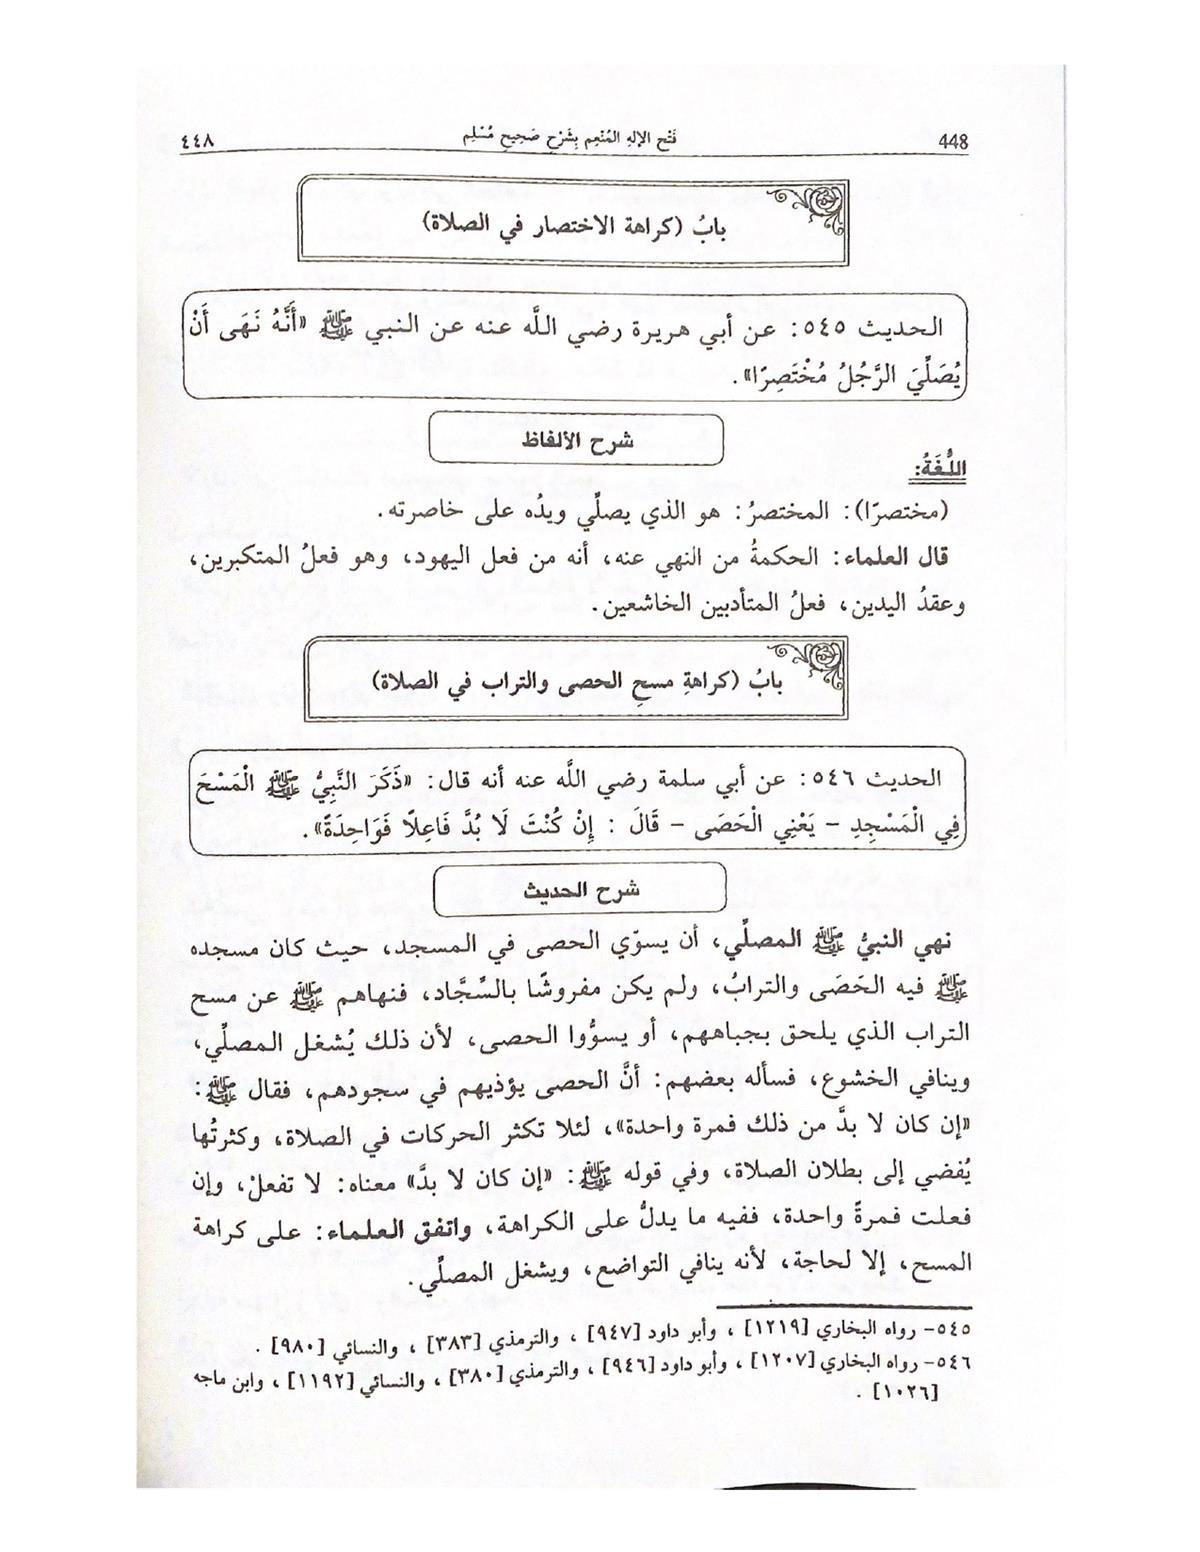 448 فَتْح الإلهِ المُنْعِم بِشَرْحِ صَحِيحِ مُسْلِم ٤٤٨
بابُ (كراهة الاختصار في الصلاة)
الحديث ٥٤٥: عن أبي هريرة رضي اللَّه عنه عن النبي ﷺ «أَنَّهُ نَهَى أَنْ
يُصَلِّيَ الرَّجُلُ مُخْتَصِرًا».
شرح الألفاظ
اللُّغَةُ:
(مختصرًا): المختصرُ: هو الذي يصلِّي ويدُه على خاصرته.
قال العلماء: الحكمةُ من النهي عنه، أنه من فعل اليهود، وهو فعلُ المتكبرين،
وعقدُ اليدين، فعلُ المتأدبين الخاشعين.
بابُ (كراهةِ مسحِ الحصى والتراب في الصلاة)
الحديث ٥٤٦: عن أبي سلمة رضي اللَّه عنه أنه قال: «ذَكَرَ النَّبِيُّ ﷺ الْمَسْحَ
فِي الْمَسْجِدِ - يَعْنِي الْحَصَى - قَالَ : إِنْ كُنْتَ لَا بُدَّ فَاعِلًا فَوَاحِدَةً».
شرح الحديث
نهي النبيُّ ﷺ المصلِّي، أن يسوّي الحصى في المسجد، حيث كان مسجده
ﷺ فيه الحَصَى والترابُ، ولم يكن مفروشًا بالسِّجَّاد، فنهاهم ﷺ عن مسح
التراب الذي يلحق بجباههم، أو يسوُّوا الحصى، لأن ذلك يُشغل المصلِّي،
وينافي الخشوع، فسأله بعضهم: أنَّ الحصى يؤذيهم في سجودهم، فقال ﷺ:
«إن كان لا بدَّ من ذلك فمرة واحدة»، لئلا تكثر الحركات في الصلاة، وكثرتُها
يُفضي إلى بطلان الصلاة، وفي قوله ﷺ: «إن كان لا بدَّ» معناه: لا تفعلْ، وإن
فعلت فمرةً واحدة، ففيه ما يدلُّ على الكراهة، واتفق العلماء: على كراهة
المسح، إلا لحاجة، لأنه ينافي التواضع، ويشغل المصلِّي.
٥٤٥- رواه البخاري [١٢١٩] ، وأبو داود [٩٤٧] ، والترمذي [٣٨٣] ، والنسائي [٩٨٠] .
٥٤٦- رواه البخاري [١٢٠٧] ، وأبو داود [٩٤٦] ، والترمذي [٣٨٠] ، والنسائي [١١٩٢] ، وابن ماجه
[١٠٢٦] .